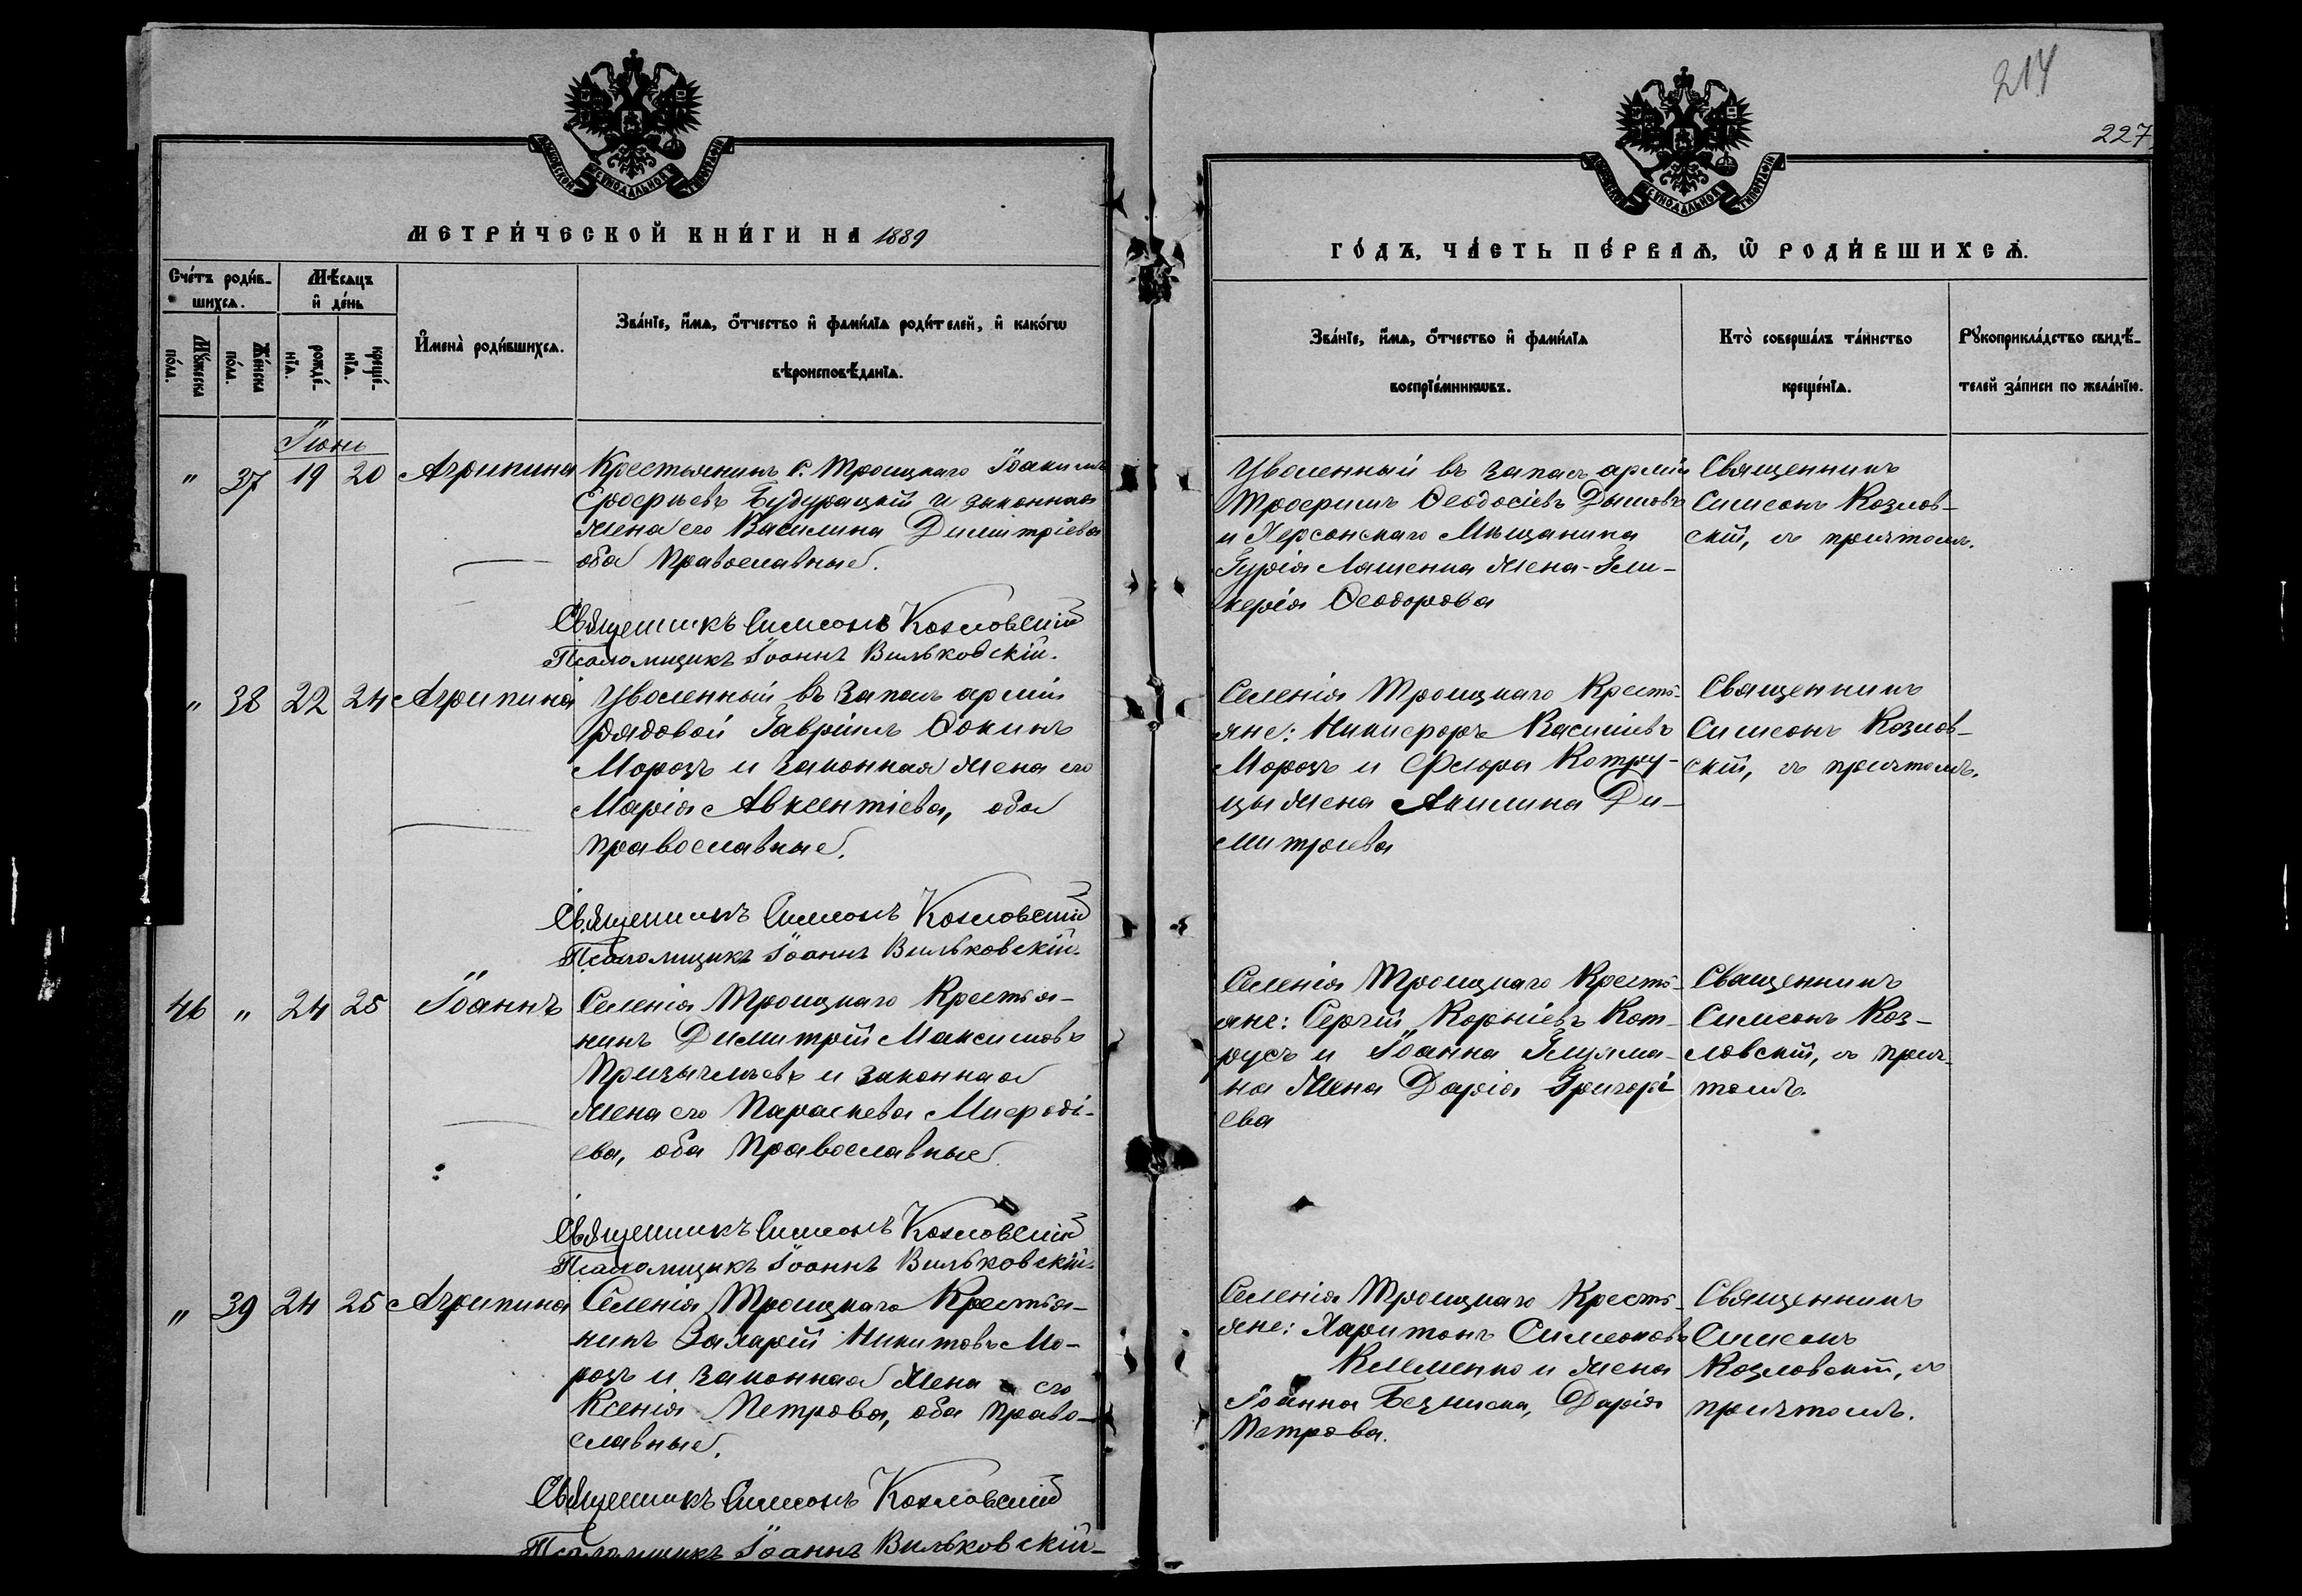 214
227
МОСКОВСКОЙ СѴНОДАЛЬНОЙ ТИПОГРАФІИ
МОСКОВСКОЙ СѴНОДАЛЬНОЙ ТИПОГРАФІИ
МЕТРИ́ЧЕСКОЙ КНИ́ГИ НА 1889
ГО́ДЪ, ЧА́СТЬ ПЕ́РВАѦ, Ѿ РОДИ́ВШИХСѦ.
Сче́тъ роди́в-
шихсѧ.
Мꙋ́жеска
по́ла.
Же́нска
по́ла.
Мѣ́сѧцъ
и҆ де́нь
рожде́-
нїѧ.
креще́-
нїѧ.
И҆мена̀ роди́вшихсѧ.
Зва́нїе, и҆́мѧ, ѻ҆́тчество и҆ фами́лїѧ роди́телей, и҆ како́гѡ
вѣроисповѣ́данїѧ.
Зва́нїе, и҆́мѧ, ѻ҆́тчество и҆ фами́лїѧ
воспрїе́мникѡвъ.
Кто̀ соверша́лъ та́инство
креще́нїѧ.
Рꙋкоприкла́дство свидѣ́-
телей за́писи по жела́нїю.
Іюнь
" 37 19 20 Агрипина
Крестьянинъ с. Троицкаго Іоакимъ
Ероферевъ Будурацкій и законная
жена его Василина Димитріева
оба православные.
Священникъ Симеонъ Козловскій
Псаломщикъ Іоаннъ Вильковскій.
Уволенный въ запасъ арміи
Трофимъ Ѳеодосіевъ Дымовъ
и Херсонскаго Мѣщанина
Гурія Ляшенка жена Гли-
керія Ѳеодорова
Священникъ
Симеонъ Козлов-
скій, съ причтомъ.
" 38 22 24 Агрипина
Уволенный въ запасъ арміи
рядовой Гавріилъ Ѳокинъ
Морозъ и законная жена его
Марія Авксентіева, оба
православные.
Священникъ Симеонъ Козловскій
Псаломщикъ Іоаннъ Вильковскій.
Селенія Троицкаго Кресть-
яне: Никифоръ Василіевъ
Морозъ и Флора Котру-
цы жена Акилина Ди-
митриева
Священникъ
Симеонъ Козлов-
скій, съ причтомъ.
46 " 24 25 Іоаннъ
Селенія Троицкаго Крестья-
нинъ Димитрій Максимовъ
и законная
жена его Параскева Мефоді-
ева, оба православные.
Священникъ Симеонъ Козловскій
Псаломщикъ Іоаннъ Вильковскій.
Селенія Троицкаго Кресть-
яне: Сергій Корніевъ Кот-
русъ и Іоанна
на жена Дарія Григорі-
ева
Священникъ
Симеонъ Коз-
ловскій, съ прич-
томъ.
" 39 24 25 Агрипина
Селенія Троицкаго Крестья-
нинъ Захарій Никитовъ Мо-
розъ и законная жена его
Ксенія Петрова, оба право-
славные.
Священникъ Симеонъ Козловскій
Псаломщикъ Іоаннъ Вильковскій
Селенія Троицкаго Кресть-
яне: Харитонъ Симеоновъ
Клименко и жена
Іоанна Дарія
Петрова.
Священникъ
Симеонъ
Козловскій, съ
причтомъ.